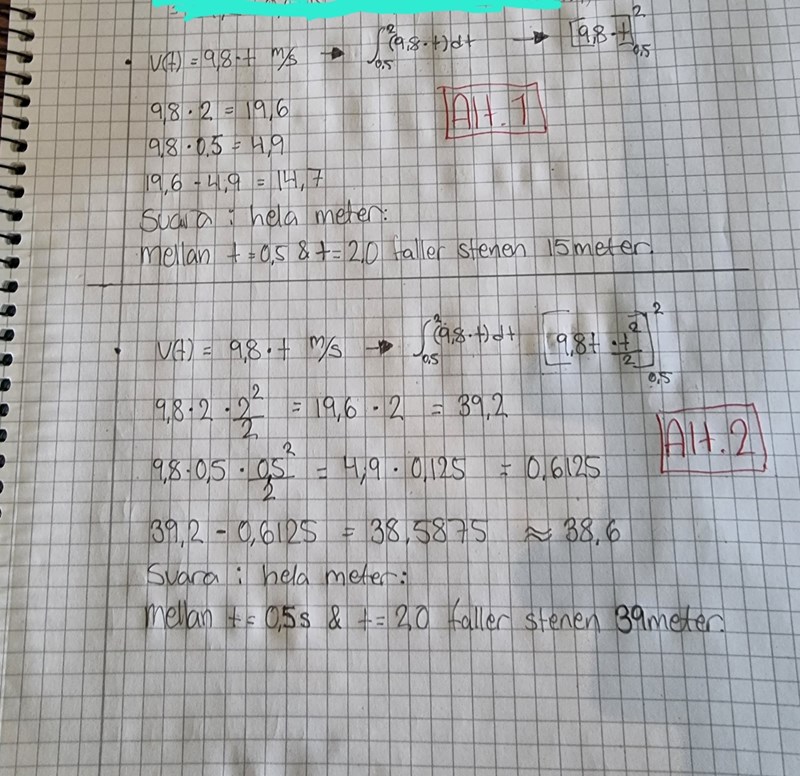 • v(t) = 9,8 · t m/s → ∫₀,₅² (9,8 · t) dt → [9,8 · t]₀,₅²
9,8 · 2 = 19,6
Alt. 1
9,8 · 0,5 = 4,9
19,6 - 4,9 = 14,7
Svara i hela meter:
mellan t = 0,5 & t = 2,0 faller stenen 15 meter.
• v(t) = 9,8 · t m/s → ∫₀,₅² (9,8 · t) dt [9,8t · t²/2]₀,₅²
9,8 · 2 · 2²/2 = 19,6 · 2 = 39,2
Alt. 2
9,8 · 0,5 · 0,5²/2 = 4,9 · 0,125 = 0,6125
39,2 - 0,6125 = 38,5875 ≈ 38,6
Svara i hela meter:
mellan t = 0,5s & t = 2,0 faller stenen 39 meter.